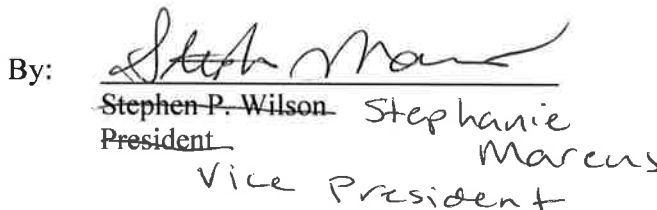 By: Steph Marcus
Stephen P. Wilson Stephanie
President Marcus
Vice President